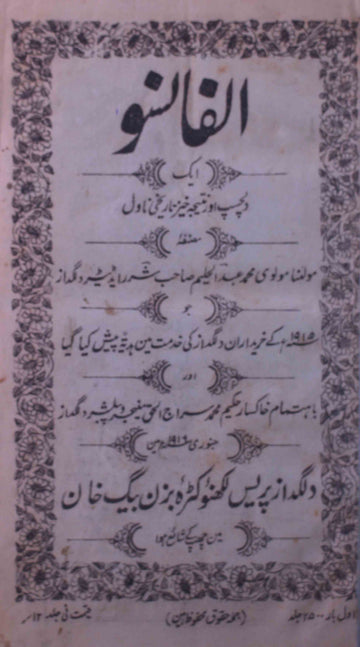 الفانسو
ایک
دلچسپ اور نتیجہ خیز تاریخی ناول
مصنفہ
مولٰنا مولوی محمد عبدالحلیم صاحب شرر ایڈیٹر دلگداز
جو
۱۹۱۵ء کے خریداران دلگداز کی خدمت مین ہدیۃً پیش کیا گیا
اور
باہتمام خاکسار حکیم محمد سراج الحق منیجر و پبلشر دلگداز
جنوری ۱۹۱۶ء مین
دلگداز پریس لکھنؤ کٹرہ بزن بیگ خان
مین چھپکے شائع ہوا
اول بار ۲۵۰۰ جلد
(جملہ حقوق محفوظ ہین)
قیمت فی جلد ۱۲